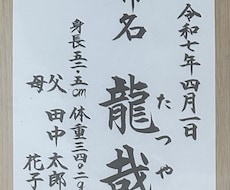 令和七年四月一日
命名 龍哉
たつや
身長五二・五㎝ 体重三四〇二g
父 田中太郎
母 花子